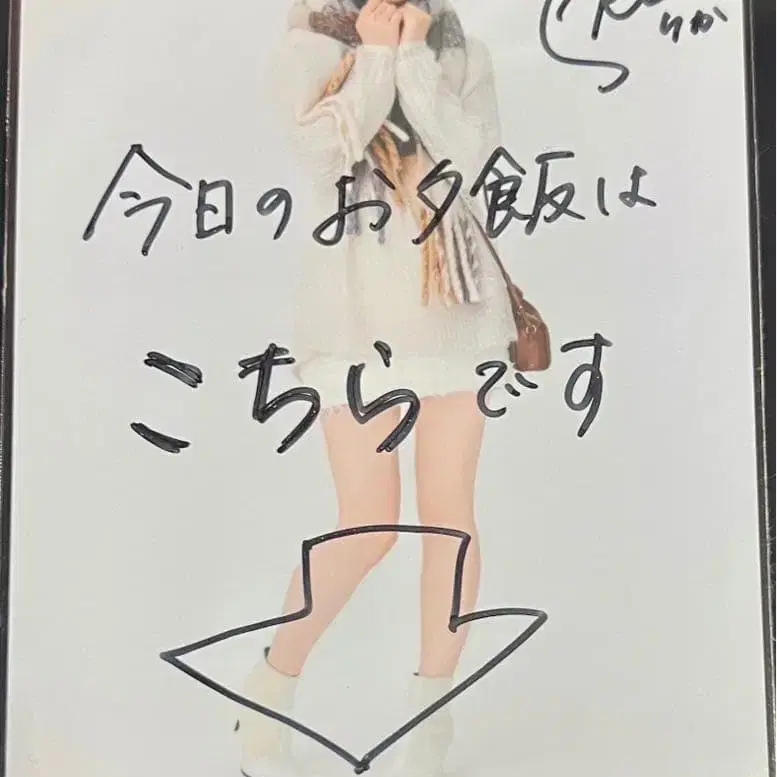 りか
今日のお夕飯は
こちらです